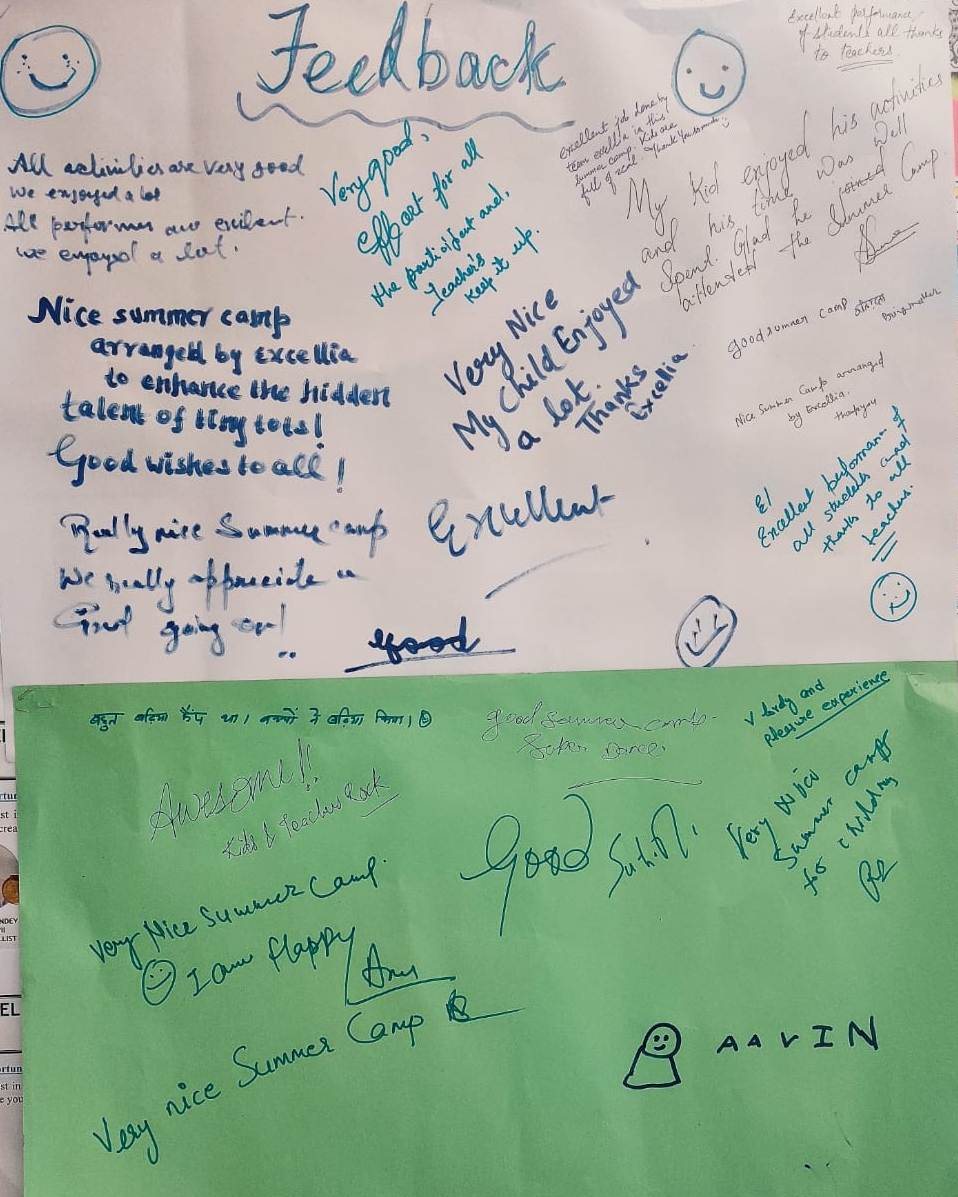 Feedback
Excellent performance
of students all thanks
to teachers
All activities are very good
We enjoyed a lot
All performer are exilent.
we enjoyed a lot.
Very good,
Effort for all
the participant and,
Teacher's
Keep it up.
Excellent job done by
team excellia in this
summer camp. Kids are
full of zeal. Thank You so much
My Kid enjoyed his activities
and his time was well
Spent. Glad he joined
attented the Summer Camp.
Nice summer camp
arranged by Excellia
to enhance the hidden
talent of tiny tots!
Good wishes to all!
Very Nice
My Child Enjoyed
a lot
Thanks
Excellia
Good summer camp
Nice Summer Camp arranged
by Excellia.
thankyou
El
Excellent performan of
all students and
thanks to all
teachers.
Really nice Summer camp
We really appreciate
Good going on!
Excellent
good
बहुत बढ़िया कैंप था। बच्चों ने बढ़िया किया।
good summer camp.
Super Dance.
v lively and
pleasure experience
Awesome!!
Kids & Teacher Rock
Good
Very Nice
Summer camp
for children
Very Nice Summer Camp.
I am Happy
Very nice Summer Camp
AAVIN
EL